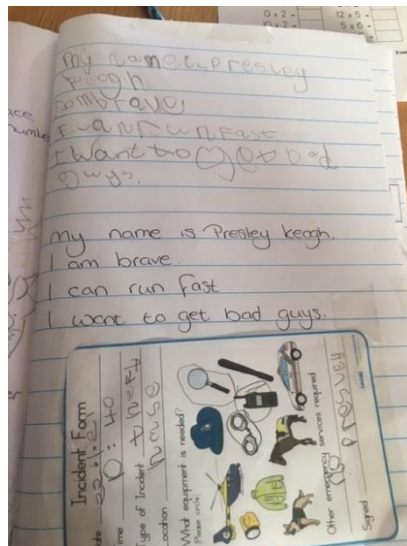 0 x 2 =
12 x 5 =
5 x 6 =
My name is Presley
keogh
I am brave
I can run fast
I want to get bad
guys.
my name is Presley keogh.
I am brave.
I can run fast
I want to get bad guys.
Incident Form
Type of Incident
Location house
What equipment is needed?
(Please circle)
Other emergency services required
Signed